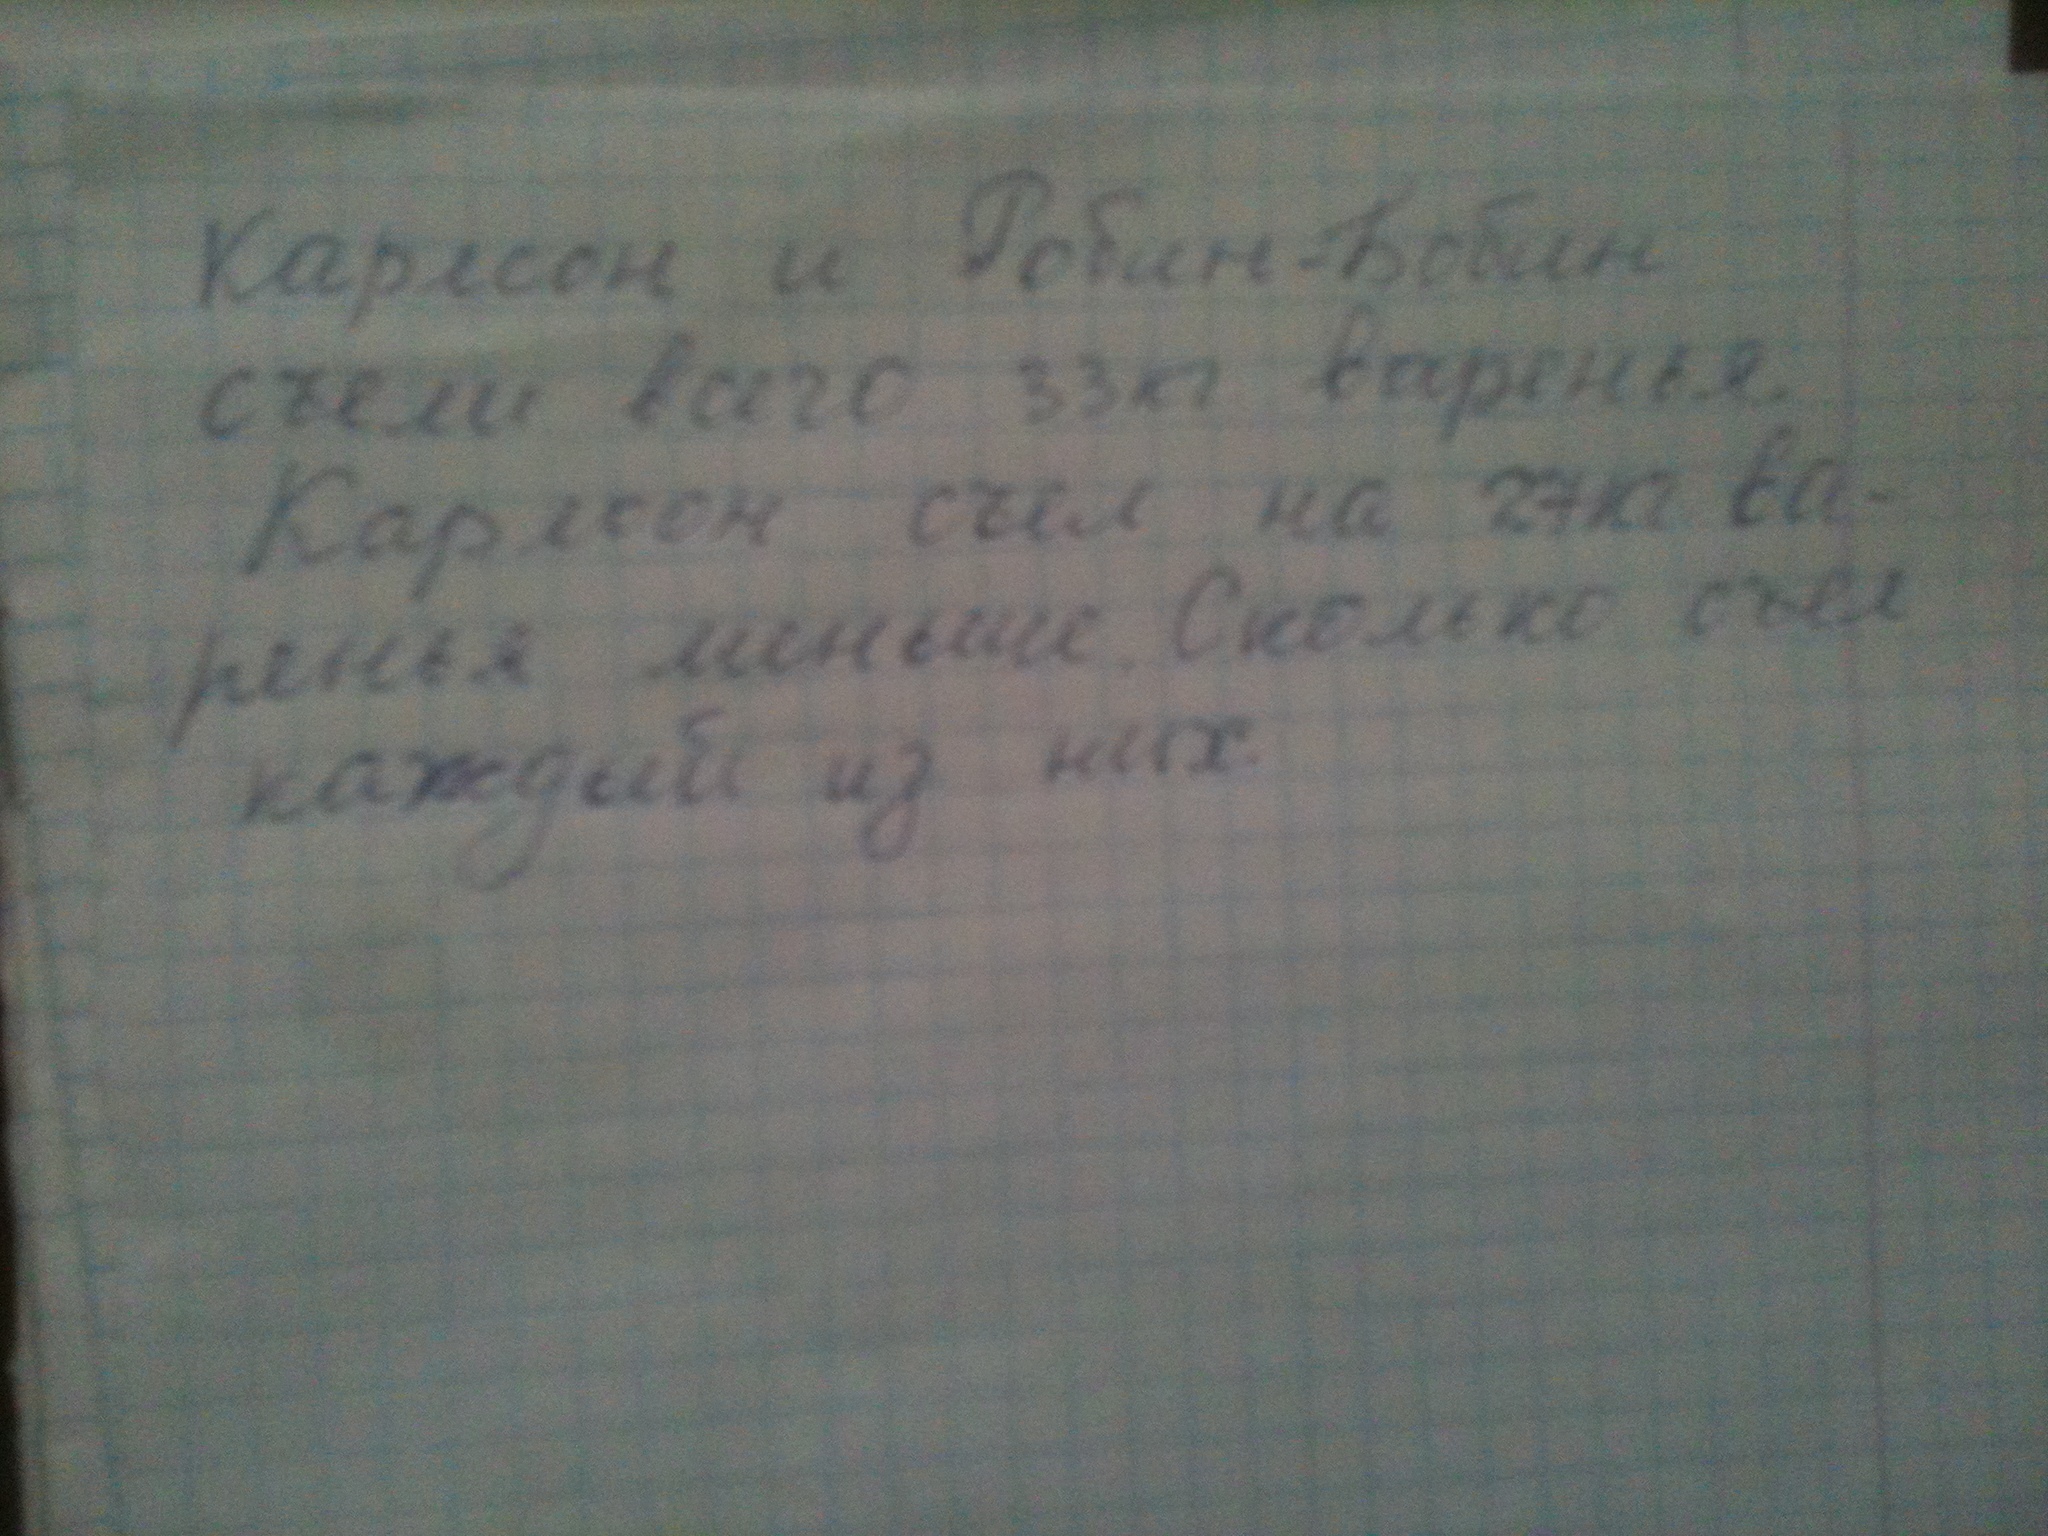 Карлсон и Робин-Бобин
съели всего 33кг варенья.
Карлсон съел на 27кг ва-
ренья меньше. Сколько съел
каждый из них.